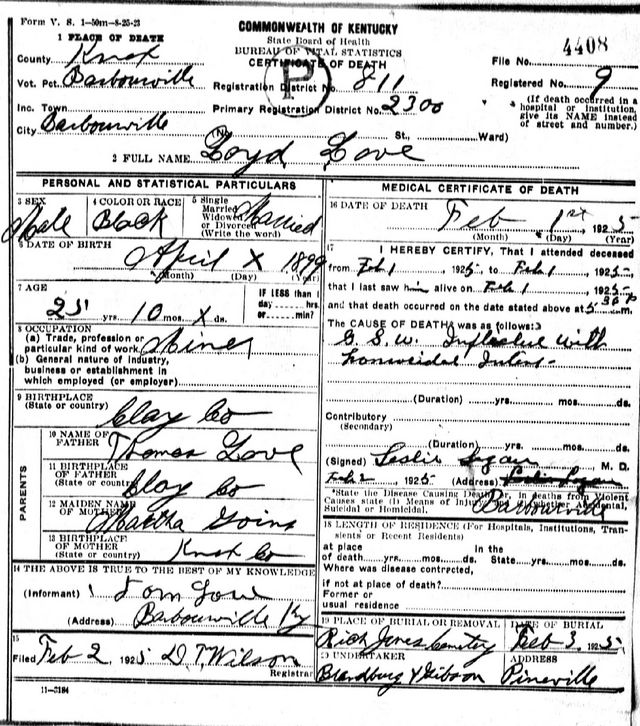 Form V. S. 1-50m-8-25-23
COMMONWEALTH OF KENTUCKY
State Board of Health
BUREAU OF VITAL STATISTICS
CERTIFICATE OF DEATH
P
1 PLACE OF DEATH
County Knox
Vot. Pct. Barbourville
Inc. Town
City Barbourville
Registration District No. 811
Primary Registration District No. 2300
File No. 4408
Registered No. 9
(If death occurred in a hospital or institution, give its NAME instead of street and number.)
(No St., Ward)
2 FULL NAME Loyd Love
PERSONAL AND STATISTICAL PARTICULARS
3 SEX Male
4 COLOR OR RACE Black
5 Single Married Widowed or Divorced (Write the word) Married
6 DATE OF BIRTH April X 1899
(Month) (Day) (Year)
7 AGE 25 yrs. 10 mos. X ds.
IF LESS than 1 day hrs. or min?
8 OCCUPATION
(a) Trade, profession or particular kind of work Miner
(b) General nature of industry, business or establishment in which employed (or employer)
9 BIRTHPLACE (State or country) Clay Co
PARENTS
10 NAME OF FATHER Thomas Love
11 BIRTHPLACE OF FATHER (State or country) Clay Co
12 MAIDEN NAME OF MOTHER Martha Goins
13 BIRTHPLACE OF MOTHER (State or country) Knox Co
14 THE ABOVE IS TRUE TO THE BEST OF MY KNOWLEDGE
(Informant) Tom Love
(Address) Barbourville Ky
15
Filed Feb 2 1925 D. T. Wilson
Registrar
11-3184
MEDICAL CERTIFICATE OF DEATH
16 DATE OF DEATH Feb 1st 1925
(Month) (Day) (Year)
17 I HEREBY CERTIFY, That I attended deceased
from Feb 1 1925 to Feb 1 1925
that I last saw him alive on Feb 1 1925
and that death occurred on the date stated above at 5 30 P m.
The CAUSE OF DEATH was as follows:
G. S. W. Inflicted with
homicidal Intent
(Duration) yrs. mos. ds.
Contributory
(Secondary)
(Duration) yrs. mos. ds.
(Signed) Leslie Logan M. D.
Feb 2 1925 (Address) Leslie Logan
Barbourville
*State the Disease Causing Death, or, in deaths from Violent Causes state (1) Means of Injury; and (2) whether Accidental, Suicidal or Homicidal.
18 LENGTH OF RESIDENCE (For Hospitals, Institutions, Transients or Recent Residents)
at place of death yrs. mos. ds. In the State yrs. mos. ds.
Where was disease contracted, if not at place of death?
Former or usual residence
19 PLACE OF BURIAL OR REMOVAL Rich Jones Cemetery
DATE OF BURIAL Feb 3 1925
20 UNDERTAKER
ADDRESS Pineville